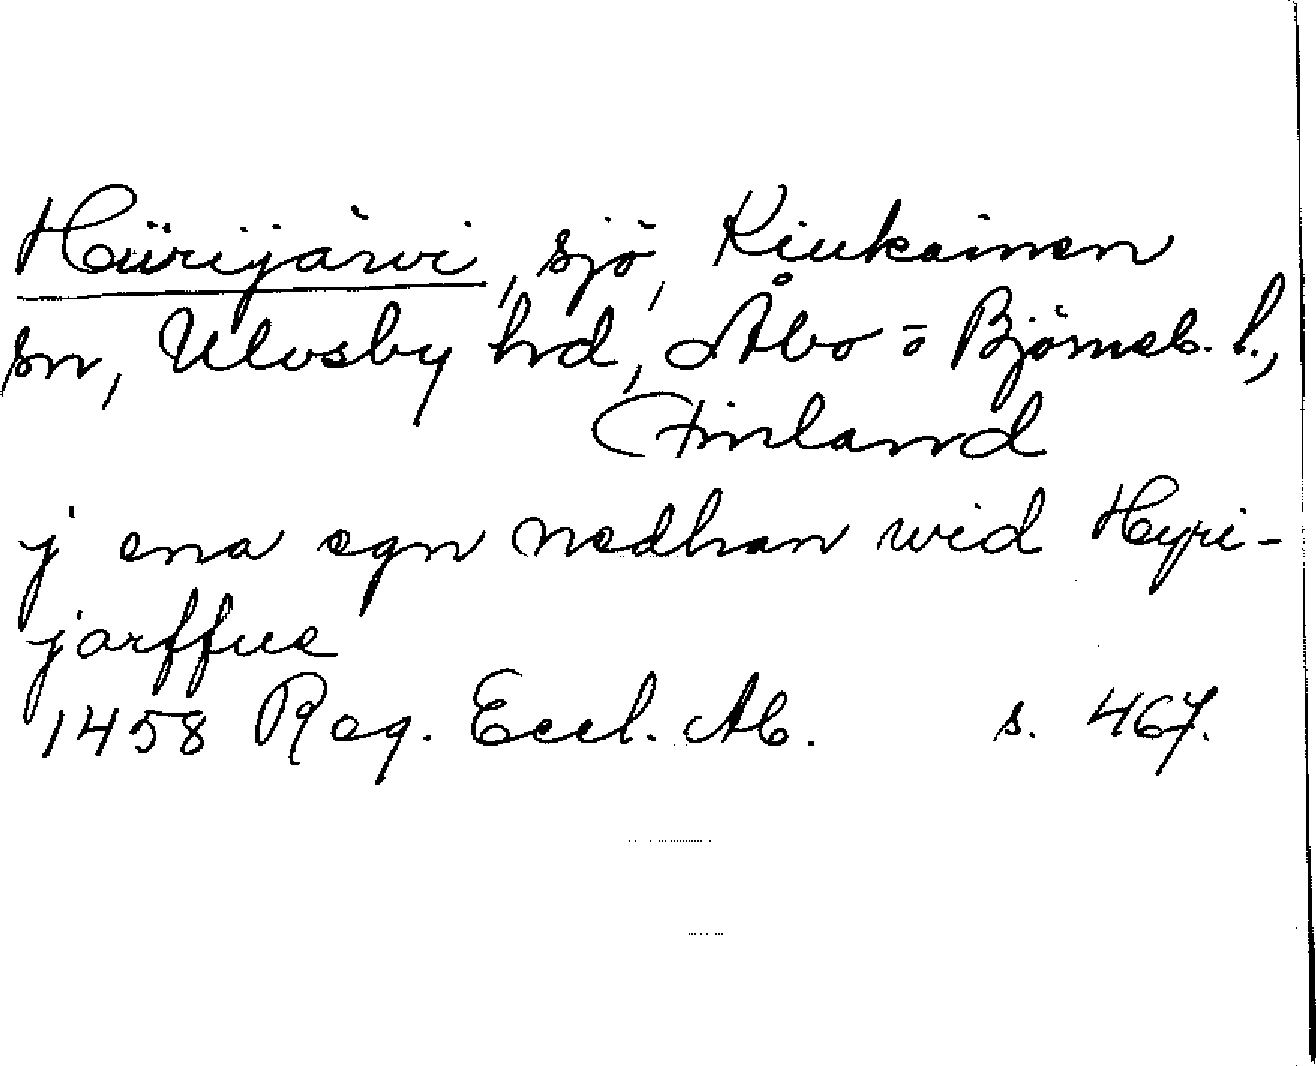 Hiirijärvi, sjö, Kiukainen
sn, Ulvsby hd, Åbo o Björneb. l.,
Finland
j ena egn nedhan wid Hyri-
jarffue
1458 Reg. Eccl. Ab. s. 467.